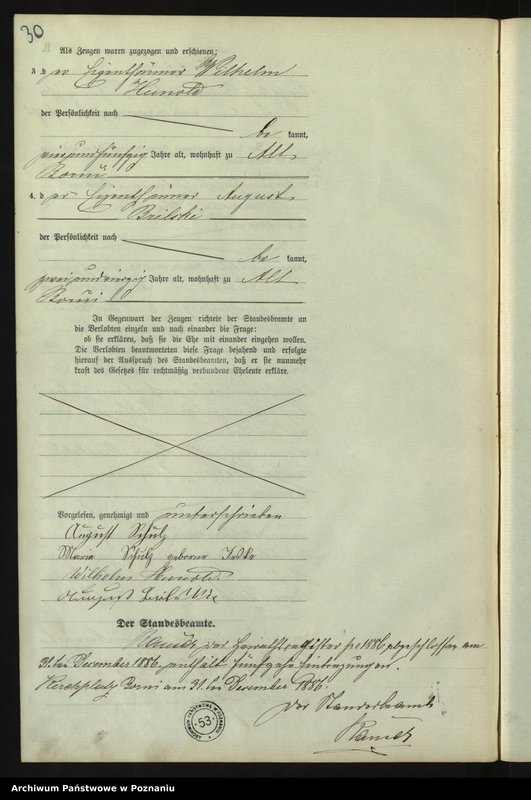 30
Als Zeugen waren zugezogen und erschienen:
3. der Eigenthümer Wilhelm
Hunold
der Persönlichkeit nach
be kannt,
vierundfünfzig Jahre alt, wohnhaft zu Alt
Borui
4. der Eigenthümer August
der Persönlichkeit nach
be kannt,
zweiundvierzig Jahre alt, wohnhaft zu Alt
Borui
In Gegenwart der Zeugen richtete der Standesbeamte an
die Verlobten einzeln und nach einander die Frage:
ob sie erklären, daß sie die Ehe mit einander eingehen wollen.
Die Verlobten beantworteten diese Frage bejahend und erfolgte
hierauf der Ausspruch des Standesbeamten, daß er sie nunmehr
kraft des Gesetzes für rechtmäßig verbundene Eheleute erkläre.
Vorgelesen, genehmigt und unterschrieben
August Schulz
Marie Schulz geborene
Wilhelm Hunold.
August
Der Standesbeamte.
das Heirathsregister pro 1886 abgeschlossen am
31. ten December 1886, enthält fünfzehn Eintragungen.
Kirchplatz Borui am 31. ten December 1886.
Der Standesbeamte
ARCHIWUM PAŃSTWOWE W POZNANIU
53
Archiwum Państwowe w Poznaniu